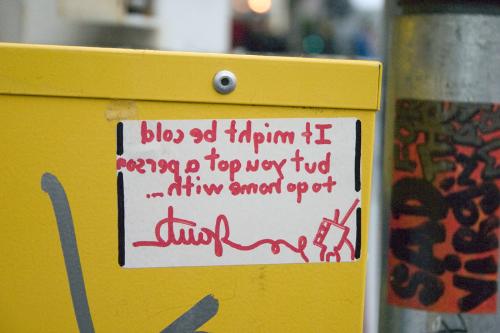 It might be cold
but you got a person
to go home with...
SAD